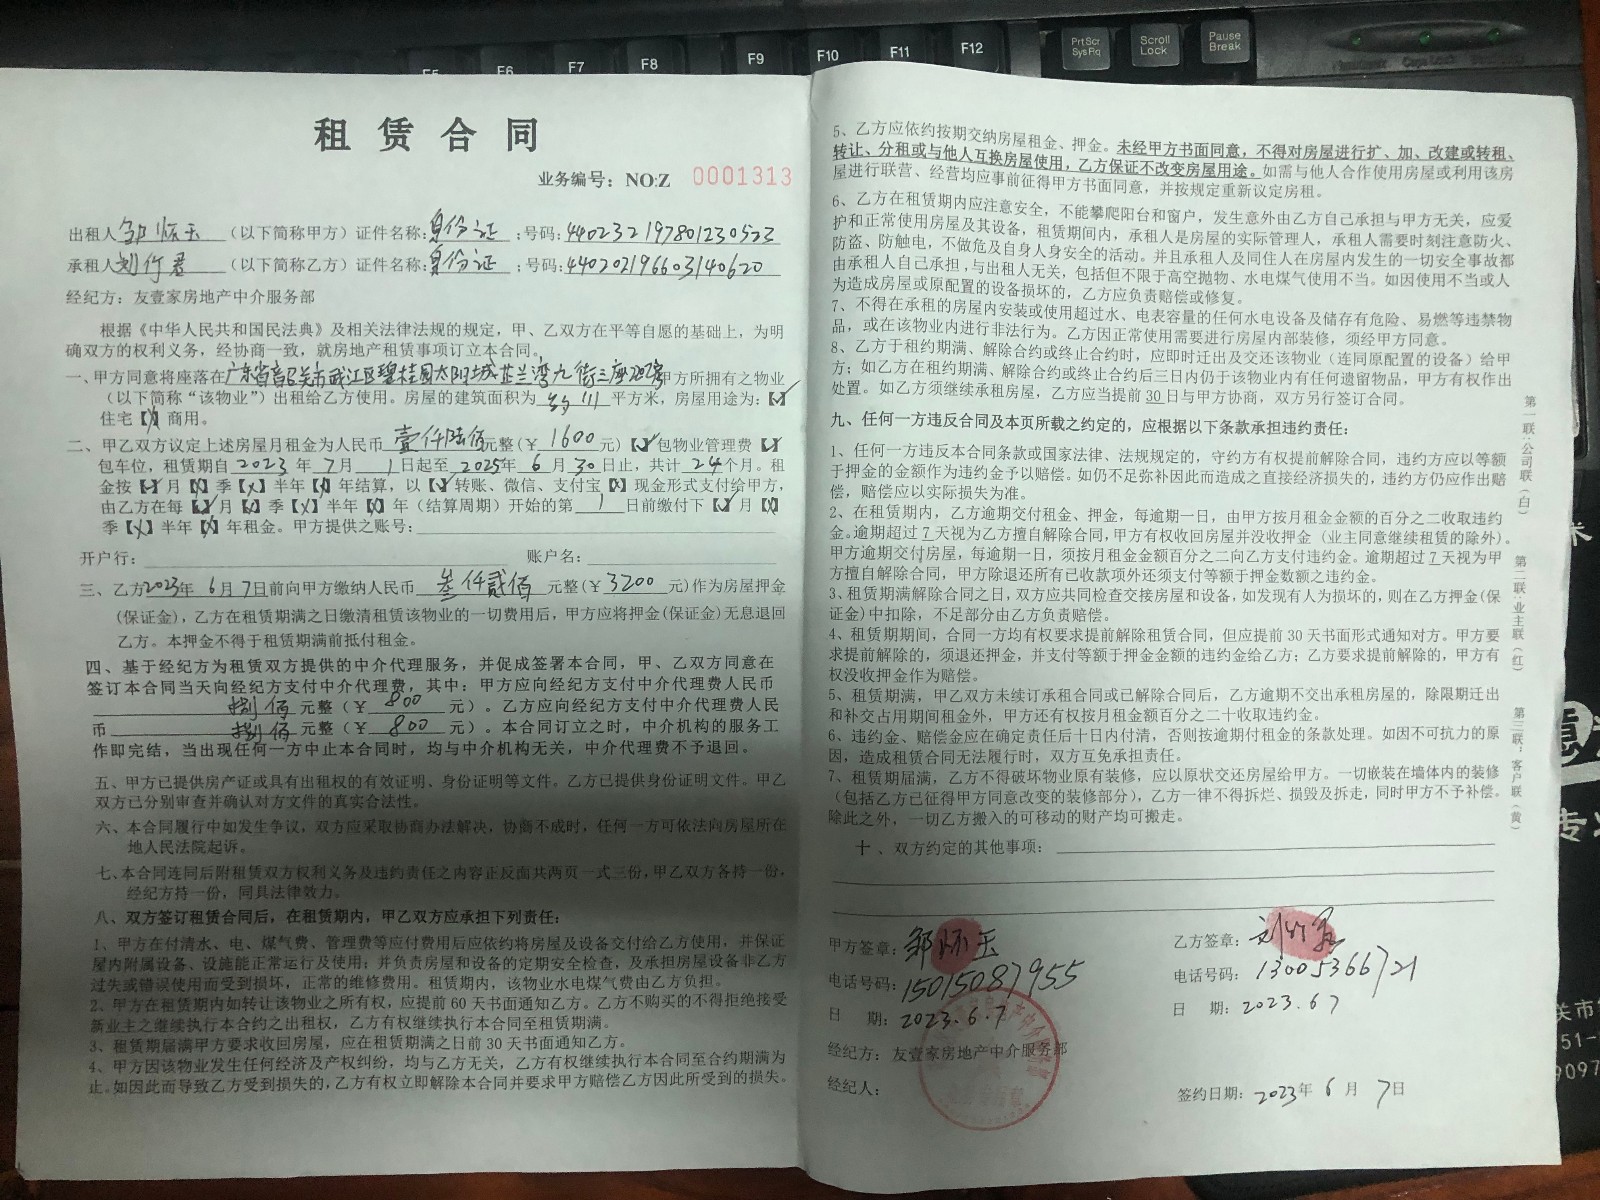 F5 F6 F7 F8 F9 F10 F11 F12
PrtScr SysRq
Scroll Lock
Pause Break
租赁合同
业务编号：NO:Z 0001313
出租人 邹怀玉 （以下简称甲方）证件名称：身份证 ；号码：440232197801230523
承租人 刘竹君 （以下简称乙方）证件名称：身份证 ；号码：440202196603140620
经纪方：友壹家房地产中介服务部
根据《中华人民共和国民法典》及相关法律法规的规定，甲、乙双方在平等自愿的基础上，为明
确双方的权利义务，经协商一致，就房地产租赁事项订立本合同。
一、甲方同意将座落在广东省韶关市武江区碧桂园太阳城芷兰湾九街三座202房甲方所拥有之物业
（以下简称“该物业”）出租给乙方使用。房屋的建筑面积为 约111 平方米，房屋用途为：【✓】
住宅【✗】商用。
二、甲乙双方议定上述房屋月租金为人民币 壹仟陆佰 元整（￥ 1600 元）【✓】包物业管理费【✓】
包车位，租赁期自 2023 年 7 月 1 日起至 2025 年 6 月 30 日止，共计 24 个月。租
金按【✓】月【✗】季【✗】半年【✗】年结算，以【✓】转账、微信、支付宝【✗】现金形式支付给甲方，
由乙方在每【✓】月【✗】季【✗】半年【✗】年（结算周期）开始的第 1 日前缴付下【✓】月【✗】
季【✗】半年【✗】年租金。甲方提供之账号：
开户行： 账户名：
三、乙方2023年 6月 7日前向甲方缴纳人民币 叁仟贰佰 元整（￥ 3200 元）作为房屋押金
(保证金)，乙方在租赁期满之日缴清租赁该物业的一切费用后，甲方应将押金(保证金)无息退回
乙方。本押金不得于租赁期满前抵付租金。
四、基于经纪方为租赁双方提供的中介代理服务，并促成签署本合同，甲、乙双方同意在
签订本合同当天向经纪方支付中介代理费，其中：甲方应向经纪方支付中介代理费人民币
捌佰 元整（￥ 800 元）。乙方应向经纪方支付中介代理费人民
币 捌佰 元整（￥ 800 元）。本合同订立之时，中介机构的服务工
作即完结，当出现任何一方中止本合同时，均与中介机构无关，中介代理费不予退回。
五、甲方已提供房产证或具有出租权的有效证明、身份证明等文件。乙方已提供身份证明文件。甲乙
双方已分别审查并确认对方文件的真实合法性。
六、本合同履行中如发生争议，双方应采取协商办法解决，协商不成时，任何一方可依法向房屋所在
地人民法院起诉。
七、本合同连同后附租赁双方权利义务及违约责任之内容正反面共两页一式三份，甲乙双方各持一份，
经纪方持一份，同具法律效力。
八、双方签订租赁合同后，在租赁期内，甲乙双方应承担下列责任：
1、甲方在付清水、电、煤气费、管理费等应付费用后应依约将房屋及设备交付给乙方使用，并保证
屋内附属设备、设施能正常运行及使用；并负责房屋和设备的定期安全检查，及承担房屋设备非乙方
过失或错误使用而受到损坏，正常的维修费用。租赁期内，该物业水电煤气费由乙方负担。
2、甲方在租赁期内如转让该物业之所有权，应提前 60 天书面通知乙方。乙方不购买的不得拒绝接受
新业主之继续执行本合约之出租权，乙方有权继续执行本合同至租赁期满。
3、租赁期届满甲方要求收回房屋，应在租赁期满之日前 30 天书面通知乙方。
4、甲方因该物业发生任何经济及产权纠纷，均与乙方无关，乙方有权继续执行本合同至合约期满为
止。如因此而导致乙方受到损失的，乙方有权立即解除本合同并要求甲方赔偿乙方因此所受到的损失。
5、乙方应依约按期交纳房屋租金、押金。未经甲方书面同意，不得对房屋进行扩、加、改建或转租、
转让、分租或与他人互换房屋使用，乙方保证不改变房屋用途。如需与他人合作使用房屋或利用该房
屋进行联营、经营均应事前征得甲方书面同意，并按规定重新议定房租。
6、乙方在租赁期内应注意安全，不能攀爬阳台和窗户，发生意外由乙方自己承担与甲方无关，应爱
护和正常使用房屋及其设备，租赁期间内，承租人是房屋的实际管理人，承租人需要时刻注意防火、
防盗、防触电，不做危及自身人身安全的活动。并且承租人及同住人在房屋内发生的一切安全事故都
由承租人自己承担，与出租人无关，包括但不限于高空抛物、水电煤气使用不当。如因使用不当或人
为造成房屋或原配置的设备损坏的，乙方应负责赔偿或修复。
7、不得在承租的房屋内安装或使用超过水、电表容量的任何水电设备及储存有危险、易燃等违禁物
品，或在该物业内进行非法行为。乙方因正常使用需要进行房屋内部装修，须经甲方同意。
8、乙方于租约期满、解除合约或终止合约时，应即时迁出及交还该物业（连同原配置的设备）给甲
方；如乙方在租约期满、解除合约或终止合约后三日内仍于该物业内有任何遗留物品，甲方有权作出
处置。如乙方须继续承租房屋，乙方应当提前 30 日与甲方协商，双方另行签订合同。
九、任何一方违反合同及本页所载之约定的，应根据以下条款承担违约责任：
1、任何一方违反本合同条款或国家法律、法规规定的，守约方有权提前解除合同，违约方应以等额
于押金的金额作为违约金予以赔偿。如仍不足弥补因此而造成之直接经济损失的，违约方仍应作出赔
偿，赔偿应以实际损失为准。
2、在租赁期内，乙方逾期交付租金、押金，每逾期一日，由甲方按月租金金额的百分之二收取违约
金。逾期超过 7 天视为乙方擅自解除合同，甲方有权收回房屋并没收押金（业主同意继续租赁的除外）。
甲方逾期交付房屋，每逾期一日，须按月租金金额百分之二向乙方支付违约金。逾期超过 7 天视为甲
方擅自解除合同，甲方除退还所有已收款项外还须支付等额于押金数额之违约金。
3、租赁期满解除合同之日，双方应共同检查交接房屋和设备，如发现有人为损坏的，则在乙方押金(保
证金)中扣除，不足部分由乙方负责赔偿。
4、租赁期期间，合同一方均有权要求提前解除租赁合同，但应提前 30 天书面形式通知对方。甲方要
求提前解除的，须退还押金，并支付等额于押金金额的违约金给乙方；乙方要求提前解除的，甲方有
权没收押金作为赔偿。
5、租赁期满，甲乙双方未续订承租合同或已解除合同后，乙方逾期不交出承租房屋的，除限期迁出
和补交占用期间租金外，甲方还有权按月租金额百分之二十收取违约金。
6、违约金、赔偿金应在确定责任后十日内付清，否则按逾期付租金的条款处理。如因不可抗力的原
因，造成租赁合同无法履行时，双方互免承担责任。
7、租赁期届满，乙方不得破坏物业原有装修，应以原状交还房屋给甲方。一切嵌装在墙体内的装修
（包括乙方已征得甲方同意改变的装修部分），乙方一律不得拆烂、损毁及拆走，同时甲方不予补偿。
除此之外，一切乙方搬入的可移动的财产均可搬走。
十、双方约定的其他事项：
甲方签章：邹怀玉 乙方签章：刘竹君
电话号码：15015087955 电话号码：13005366721
日 期：2023.6.7 日 期：2023.6.7
经纪方：友壹家房地产中介服务部
经纪人： 签约日期：2023年 6 月 7日
第一联：公司联（白）
第二联：业主联（红）
第三联：客户联（黄）